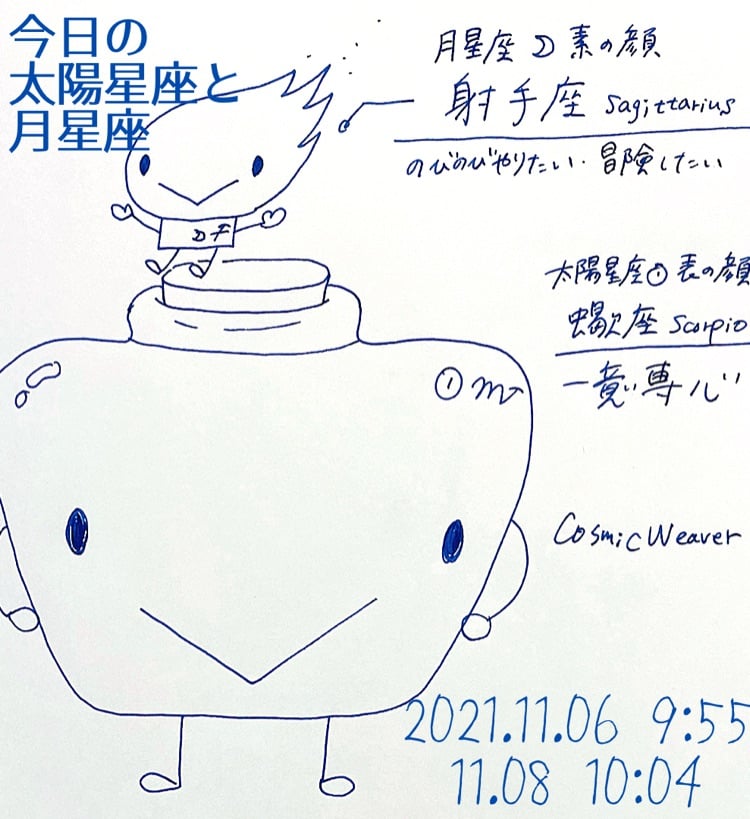 今日の
太陽星座と
月星座
月星座 ☽ 素の顔
射手座 Sagittarius
のびのびやりたい・冒険したい
☽♐
太陽星座☉表の顔
蠍座 Scorpio
一意専心
☉♏
Cosmic Weaver
2021.11.06 9:55
11.08 10:04